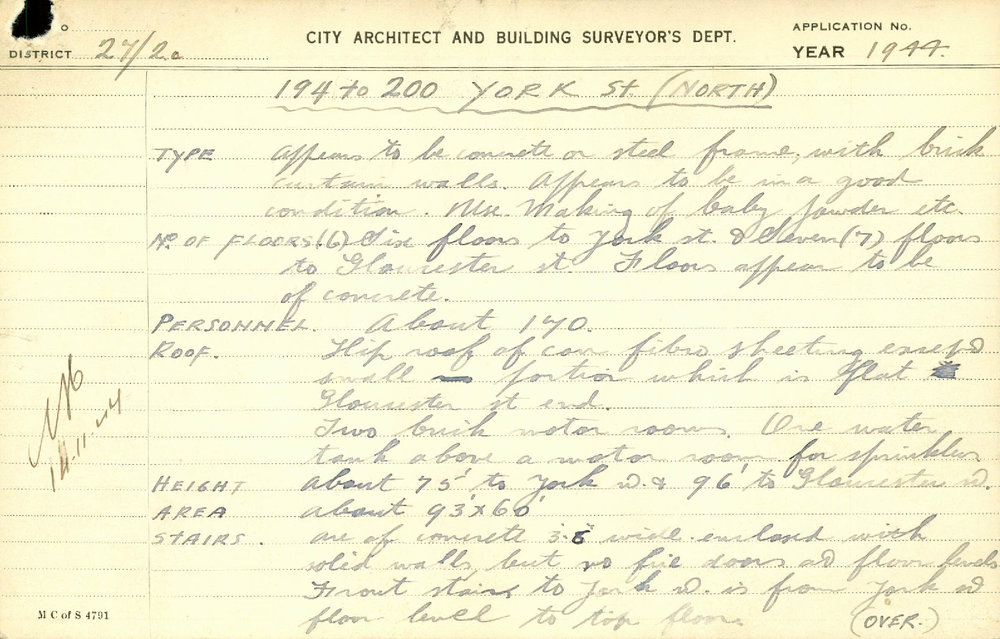 CITY ARCHITECT AND BUILDING SURVEYOR'S DEPT.
APPLICATION No.
DISTRICT 27/2c
YEAR 1944
194 to 200 YORK St. (NORTH)
TYPE Appears to be concrete or steel frame, with brick
curtain walls. Appears to be in a good
condition. Use. Making of baby powder etc.
No. OF FLOORS. (6) Six floors to York st. & Seven (7) floors
to Gloucester st Floors appear to be
of concrete.
PERSONNEL. About 170.
ROOF. Hip roof of corr fibro sheeting except
small portion which is flat
Gloucester st end.
Two brick motor rooms. One water
tank above a motor room for sprinklers
HEIGHT About 75' to York st. & 96' to Gloucester st.
AREA About 93' x 60'
STAIRS. are of concrete 3.8 wide enclosed with
solid walls, but no fire doors at floor levels
Front stairs to York st. is from York st
floor level to top floor. (OVER.)
14.11.44
M C of S 4791